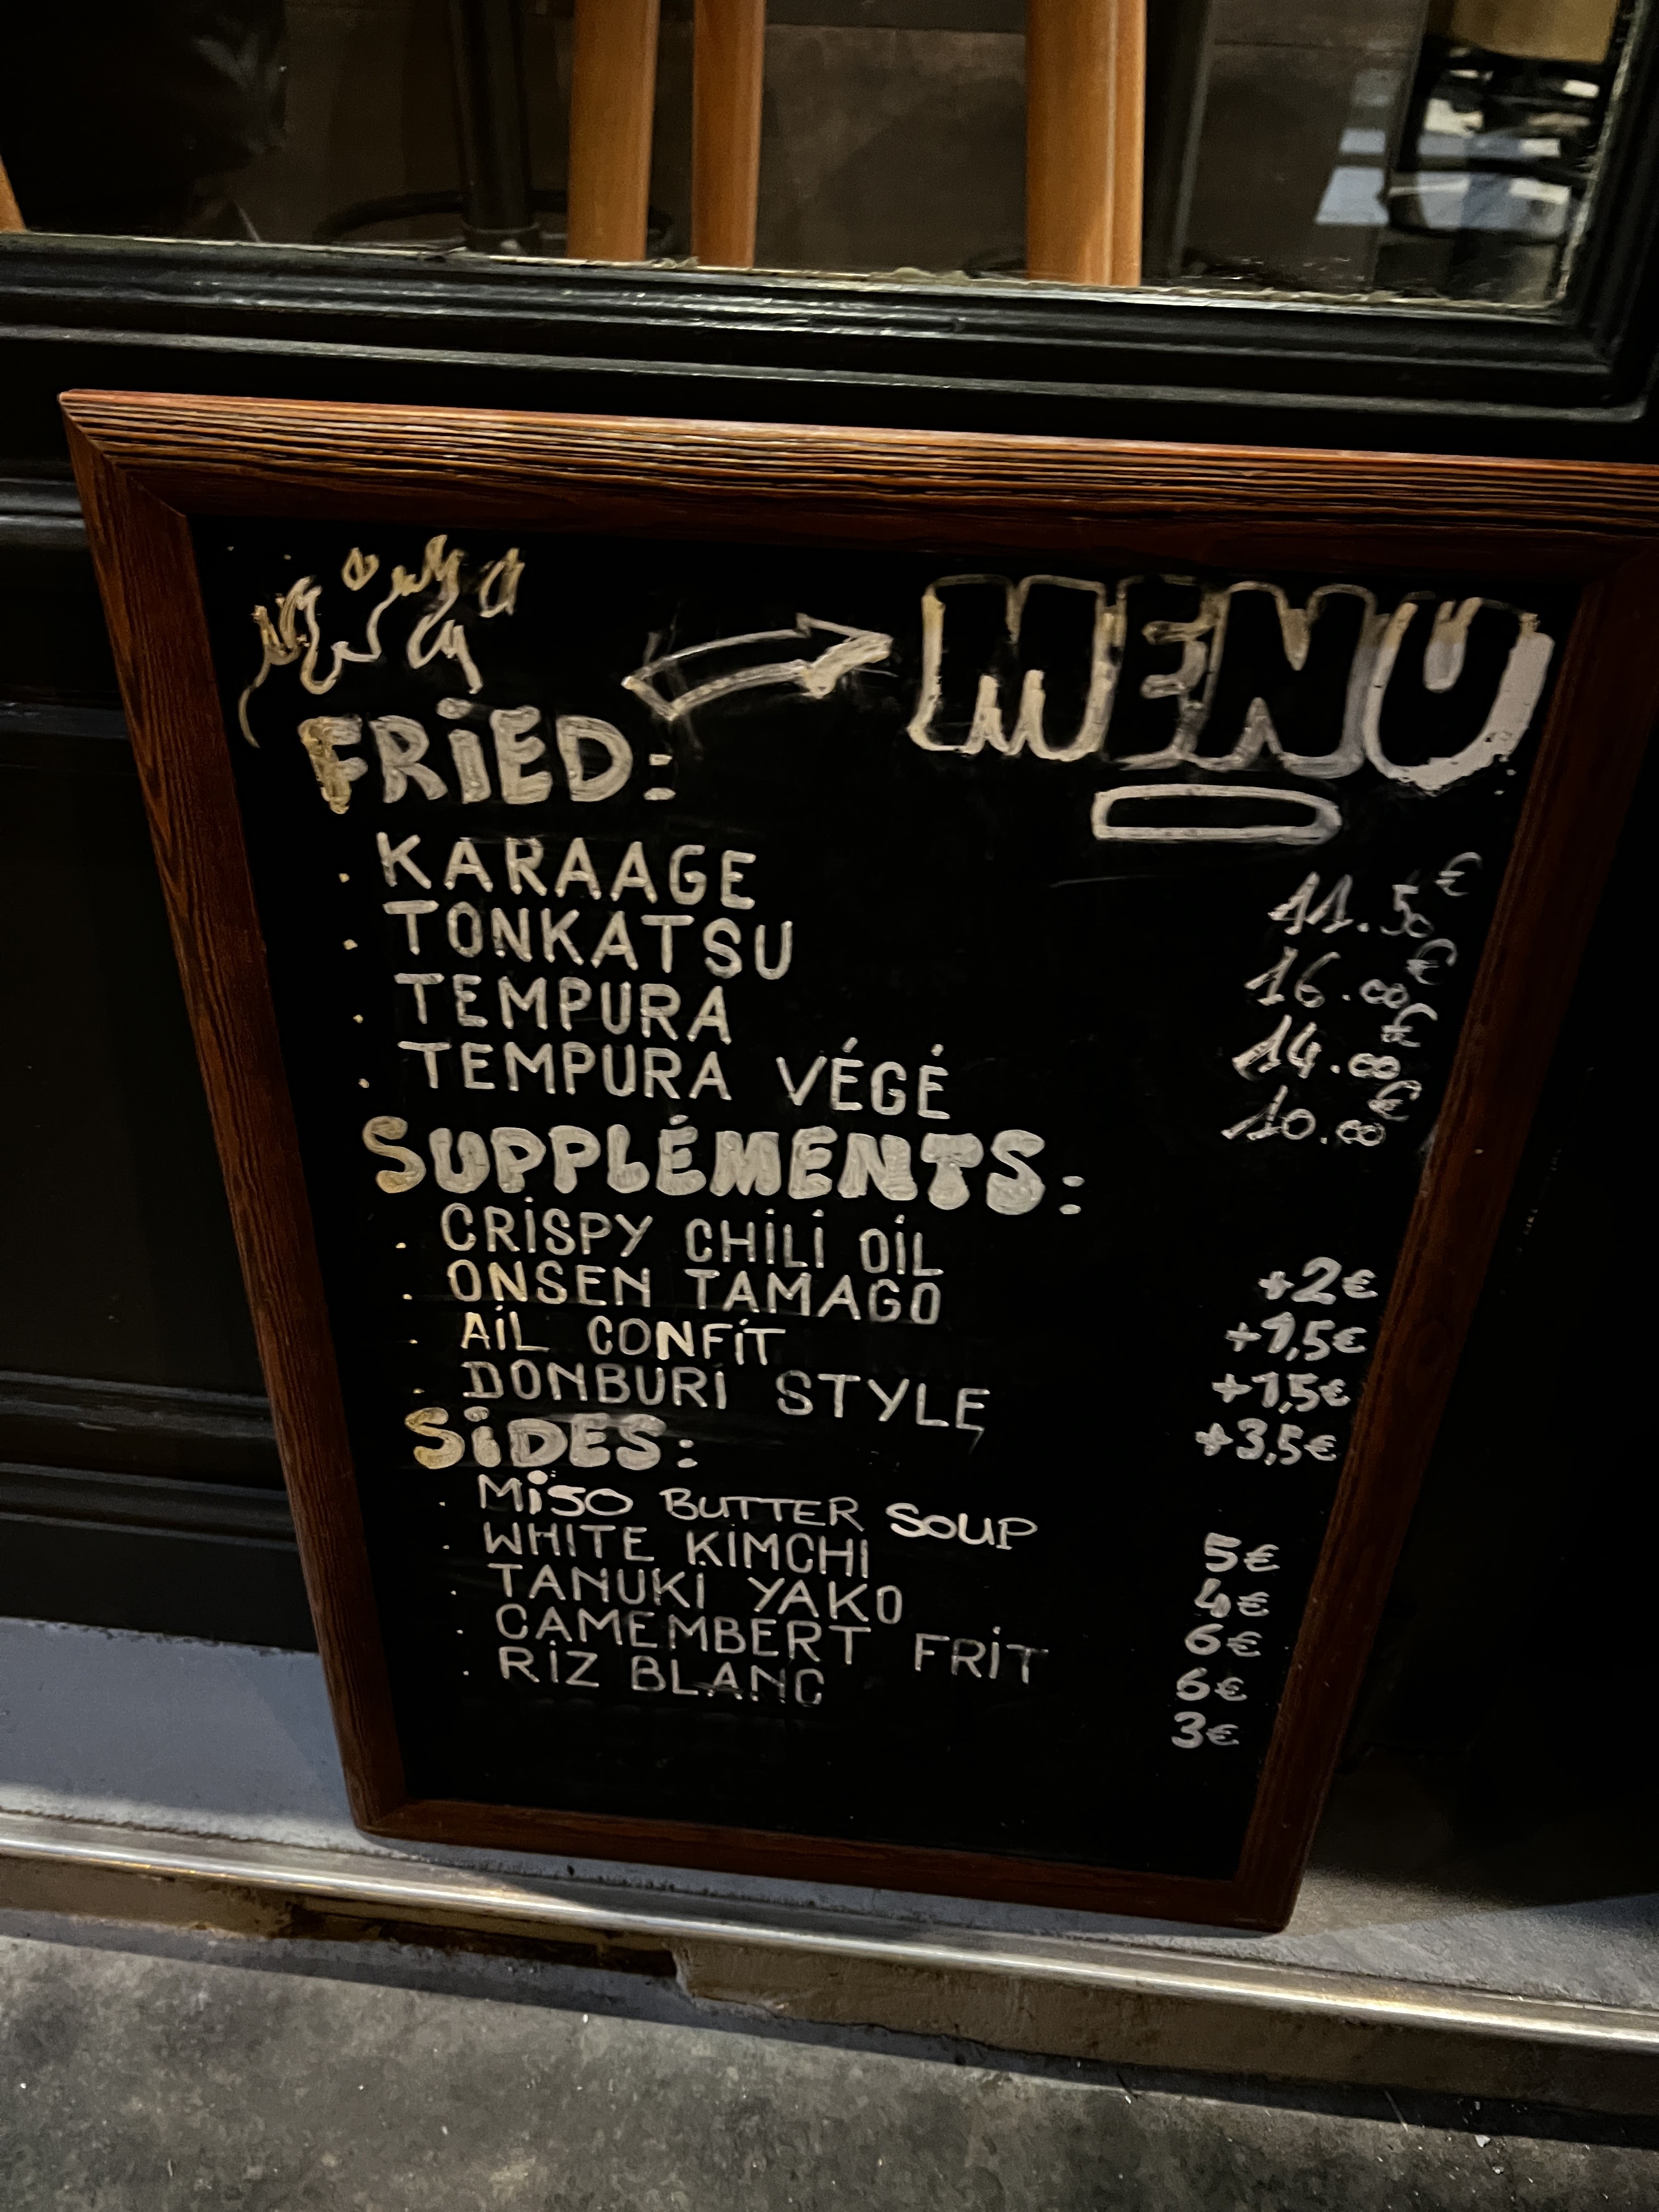 MENU
FRiED:
. KARAAGE 11.50€
. TONKATSU 16.00€
. TEMPURA 14.00€
. TEMPURA VÉGÉ 10.00€
SUPPLÉMENTS:
. CRiSPY CHiLi OiL +2€
. ONSEN TAMAGO +1,5€
. AiL CONFiT +1,5€
. DONBURi STYLE +3,5€
SiDES:
. MiSO BUTTER SOUP 5€
. WHITE KiMCHI 4€
. TANUKi YAKO 6€
. CAMEMBERT FRiT 6€
. RiZ BLANC 3€